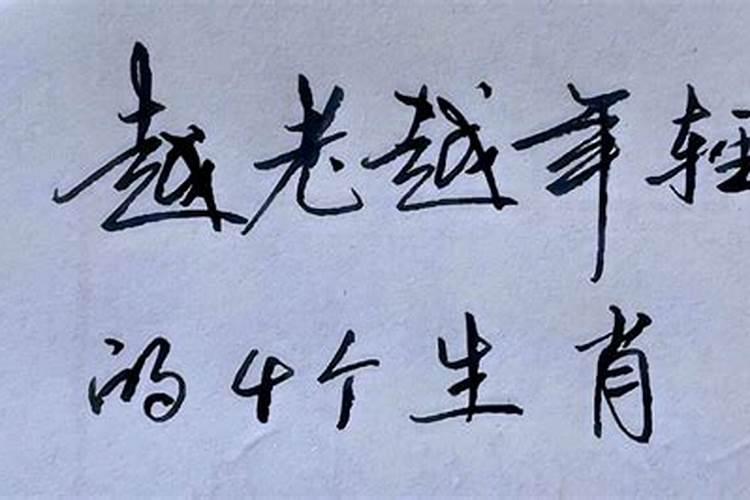 越老越年轻
的4个生肖